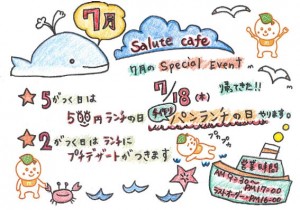 7月
Salute cafe
7月の Special Event
★5がつく日は
500円ランチの日
★2がつく日はランチに
プチデザートがつきます
帰ってきた!!
7/18(木)
手作り パンランチの日 やります。
プカプカ
営業時間
ラストオーダーPM16:00